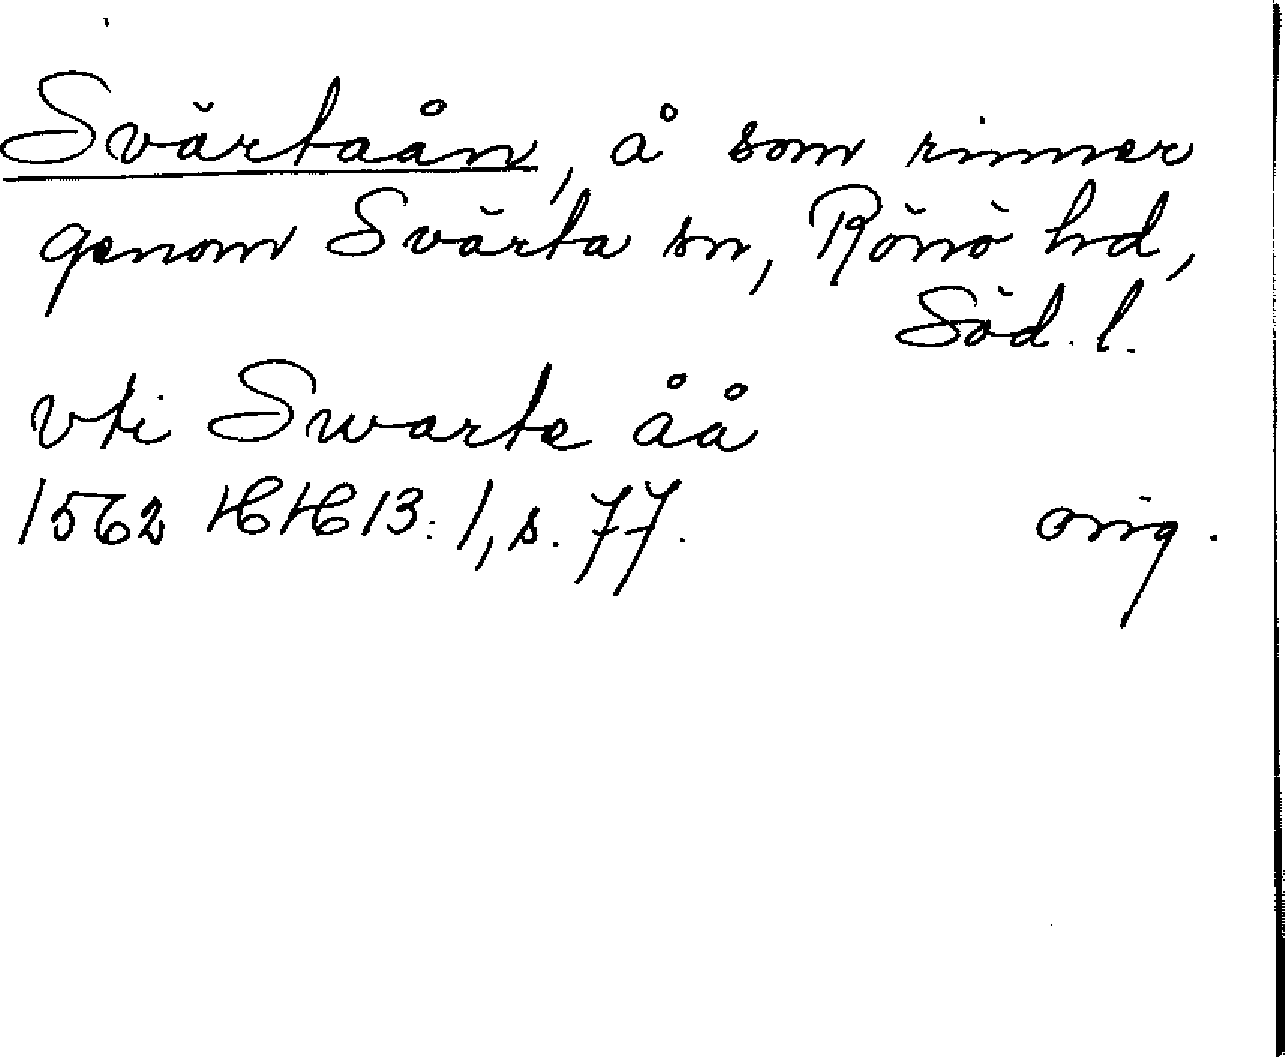 Svärtaån, å som rinner
genom Svärta sn, Rönö hd,
Söd. l.
vti Swarte åå
1562 HH 13:1, s. 77. orig.